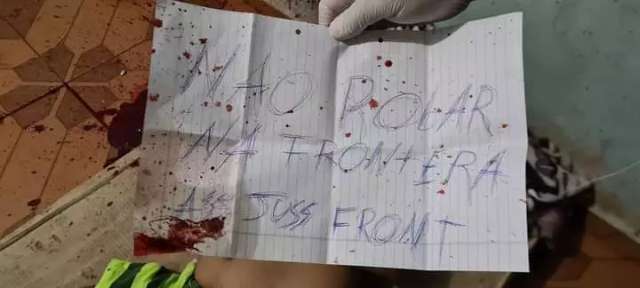 NÃO ROLAR
NA FRONTERA
ASS JUSS FRONT